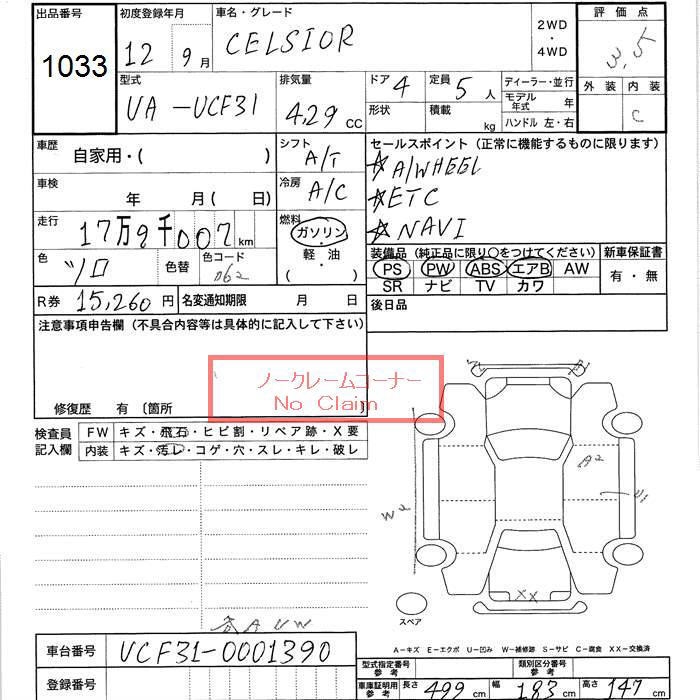 出品番号 1033
初度登録年月 12年 9月
車名・グレード CELSIOR
2WD・4WD
評価点 3.5
型式 UA-UCF31
排気量 429cc
ドア 4
形状
定員 5人
積載 kg
ディーラー・並行
モデル年式 年
ハンドル 左・右
外装 内装 C
車歴 自家用・( )
シフト A/T
セールスポイント (正常に機能するものに限ります)
☆A/WHEEL
☆ETC
☆NAVI
車検 年 月 ( 日)
冷房 A/C
走行 17万9千007km
燃料 ガソリン・軽・油 ( )
色 ソロ
色替
色コード 062
装備品 (純正品に限り○をつけてください)
PS PW ABS エアB AW
SR ナビ TV カワ
新車保証書 有・無
R券 15,260円
名変通知期限 月 日
後日品
注意事項申告欄 (不具合内容等は具体的に記入して下さい)
ノークレームコーナー
No Claim
修復歴 有 〔箇所
検査員記入欄
FW キズ・飛石・ヒビ割・リペア跡・X要
内装 キズ・汚レ・コゲ・穴・スレ・キレ・破レ
A2
U1
W2
XX
スペア
A-キズ E-エクボ U-凹み W-補修跡 S-サビ C-腐食 XX-交換済
車台番号 UCF31-0001390
登録番号
型式指定番号 参考
類別区分番号 参考
車庫証明用 参考 長さ 499cm 幅 183cm 高さ 147cm